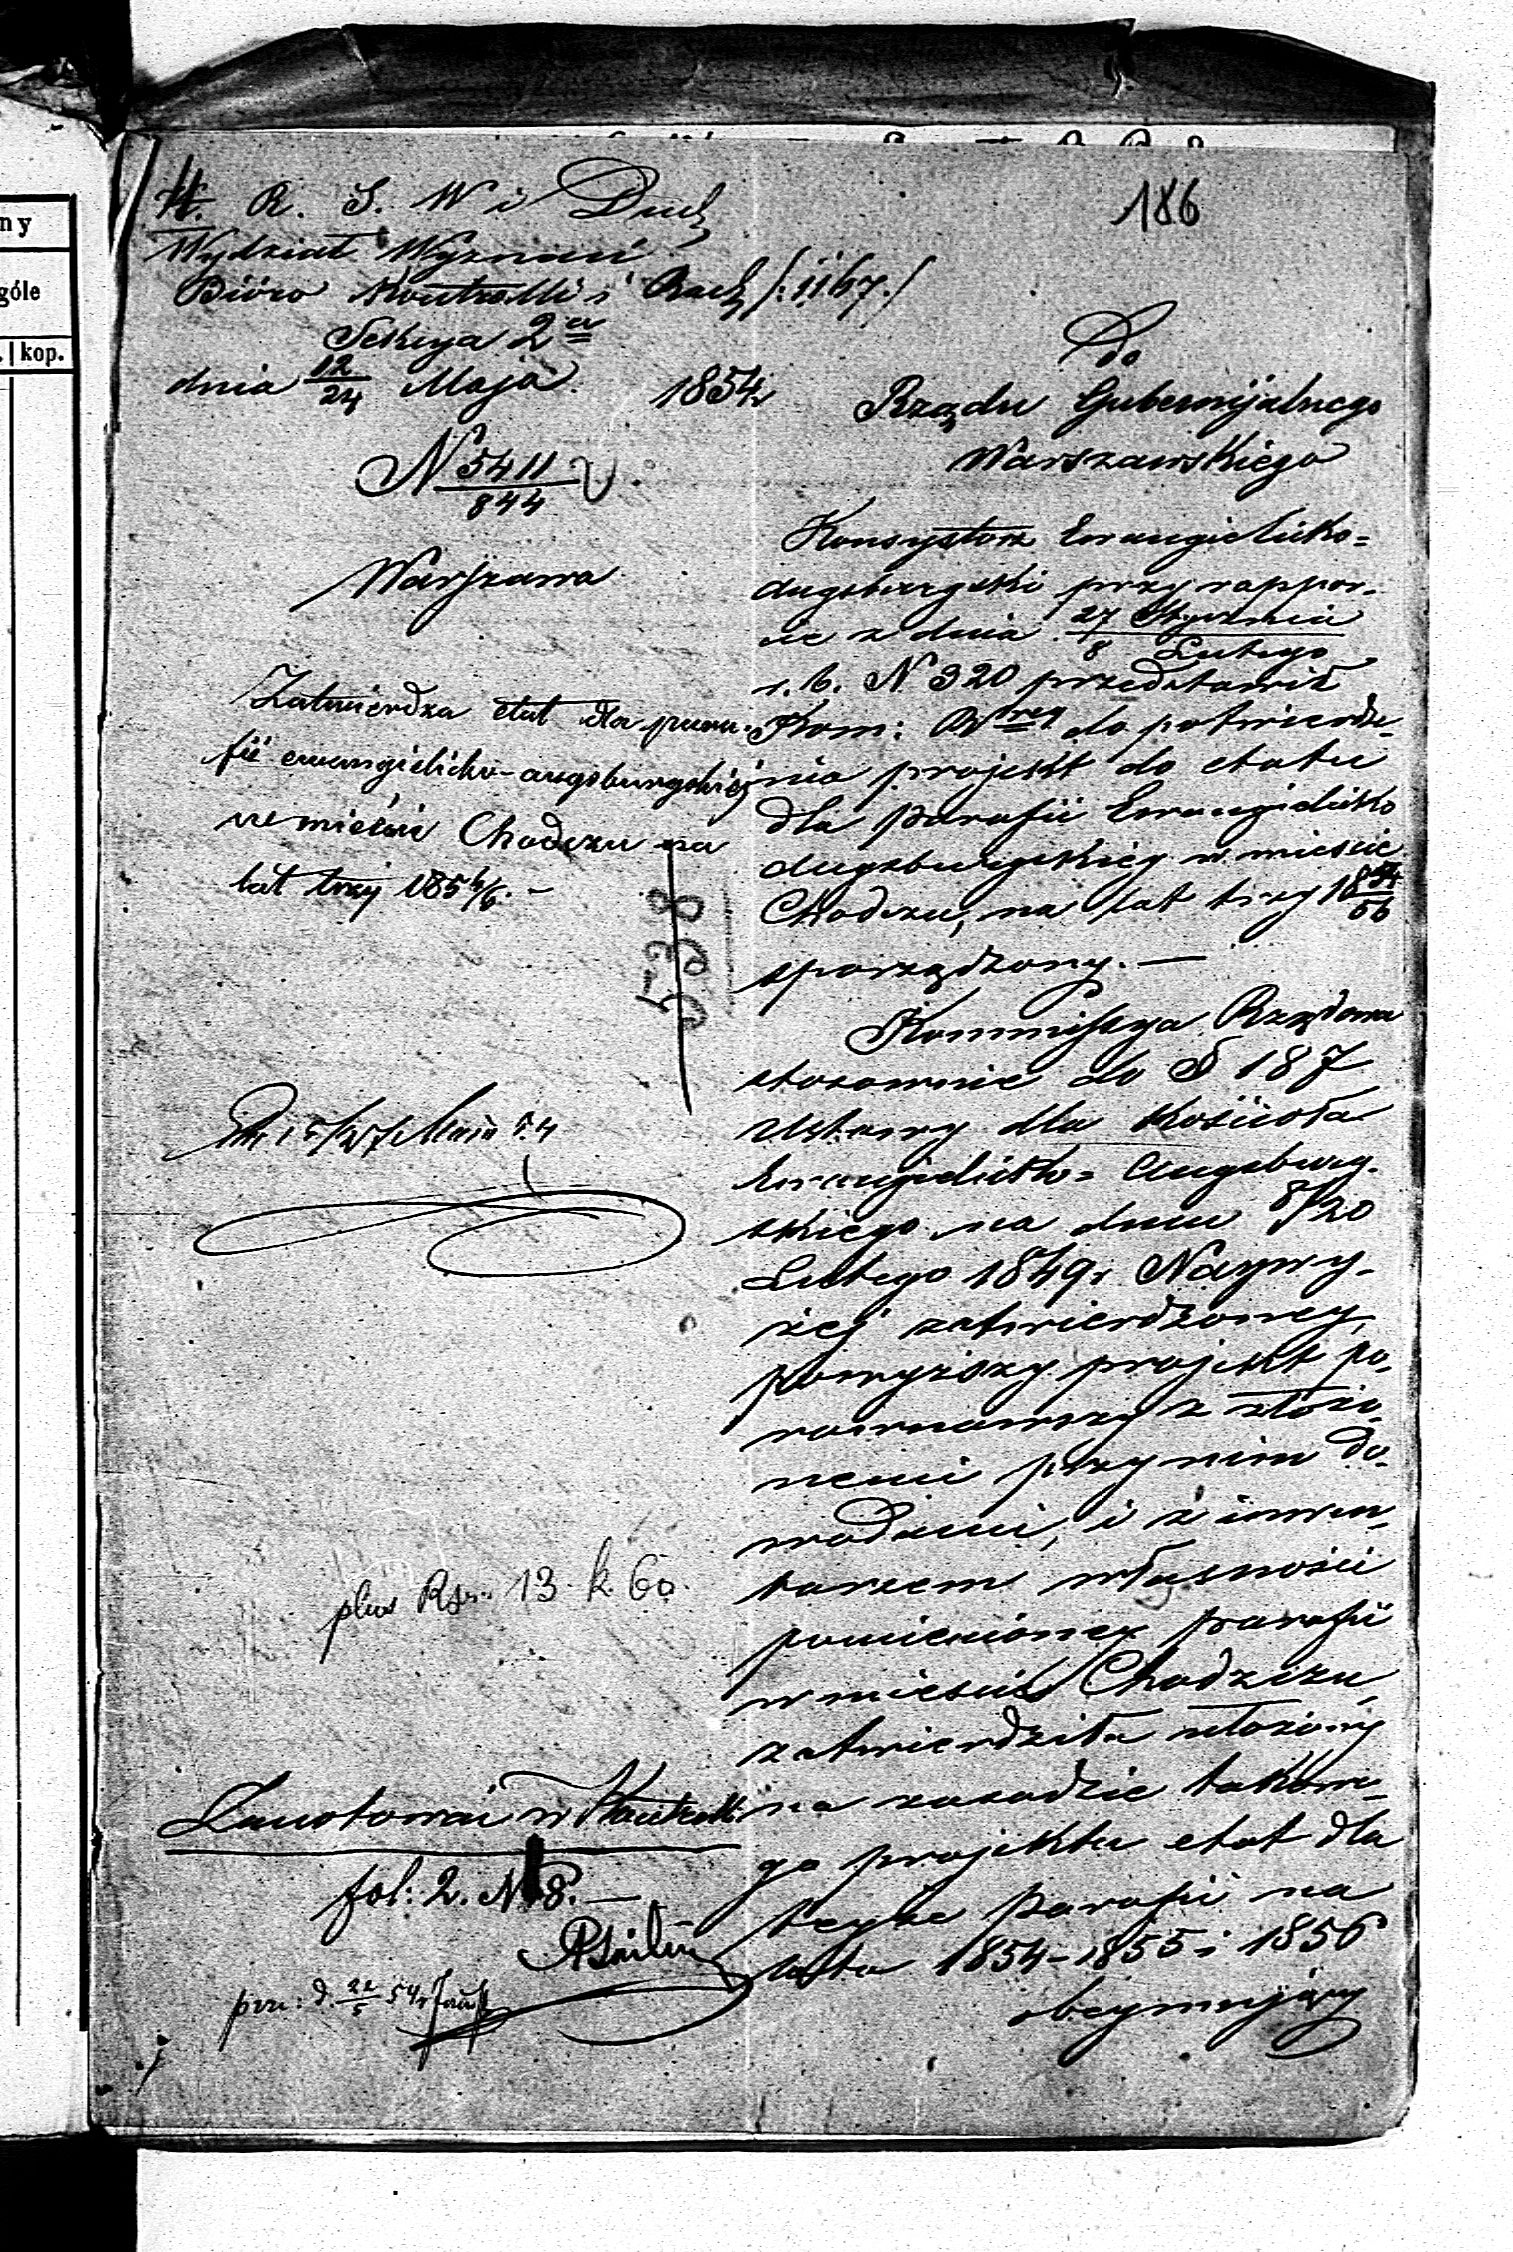 ny
góle
kop.
186
K. R. S. W i Duch
Wydział Wyznań
Bióro Kontrolli i Rach /:1167:/
Sekcya 2a
dnia 12/24 Maja 1854r
N 5411/844
Warszawa
Zatwierdza etat dla para-
fii ewangielicko-augsburgskiéj
w mieście Chodczu na
lat trzy 1854/6.-
538
plus Rsr. 13 k 60.
Zanotować w Kontrolli
fol: 2. N 8.-
Do
Rządu Gubernijalnego
Warszawskiego
Konsystorz Ewangielicko-
Augsburgski przy rappor-
cie z dnia 27 Stycznia / 8 Lutego
r. b. N 320 przedstawił
Kom: Rwey do potwierdze-
nia projekt do etatu
dla Parafii Ewangielicko
Augsburgskiey w mieście
Chodczu, na lat trzy 1854/56
sporządzony.-
Kommissya Rządowa
stosownie do § 187
Ustawy dla Kościoła
Ewangielicko-Augsburg-
skiego na dniu 8/20
Lutego 1849r Naywy-
żej zatwierdzoney,
powyższy projekt po-
rownawszy z złożo-
nemi przy nim do-
wodami, i z inwen-
tarzem własności
pomienioney parafii
w mieście Chodziczu,
zatwierdziła ułożony
na zasadzie takowe-
go projektu etat dla
teyże Parafii na
lata 1854-1855 i 1856
obeymujący